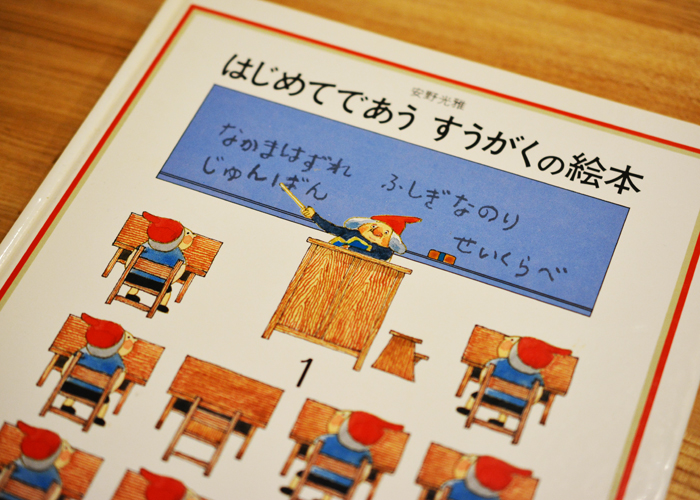 安野光雅
はじめてであう すうがくの絵本
なかまはずれ
じゅんばん
ふしぎなのり
せいくらべ
1